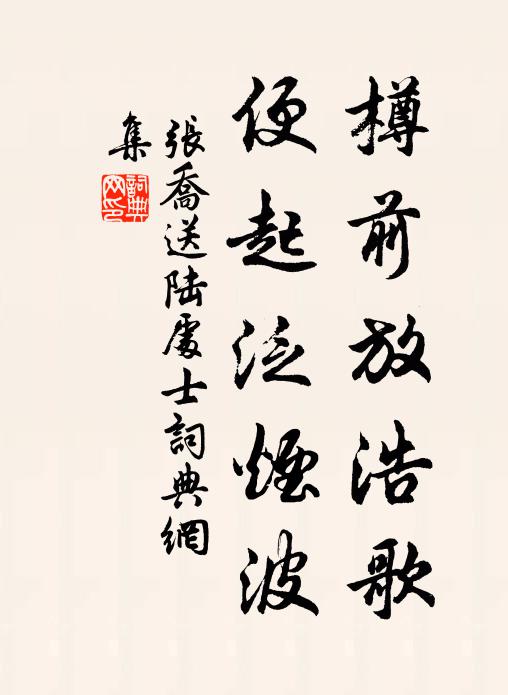 樽前放浩歌
便起泛煙波
張喬送陸處士詞典網
集
詞典網印